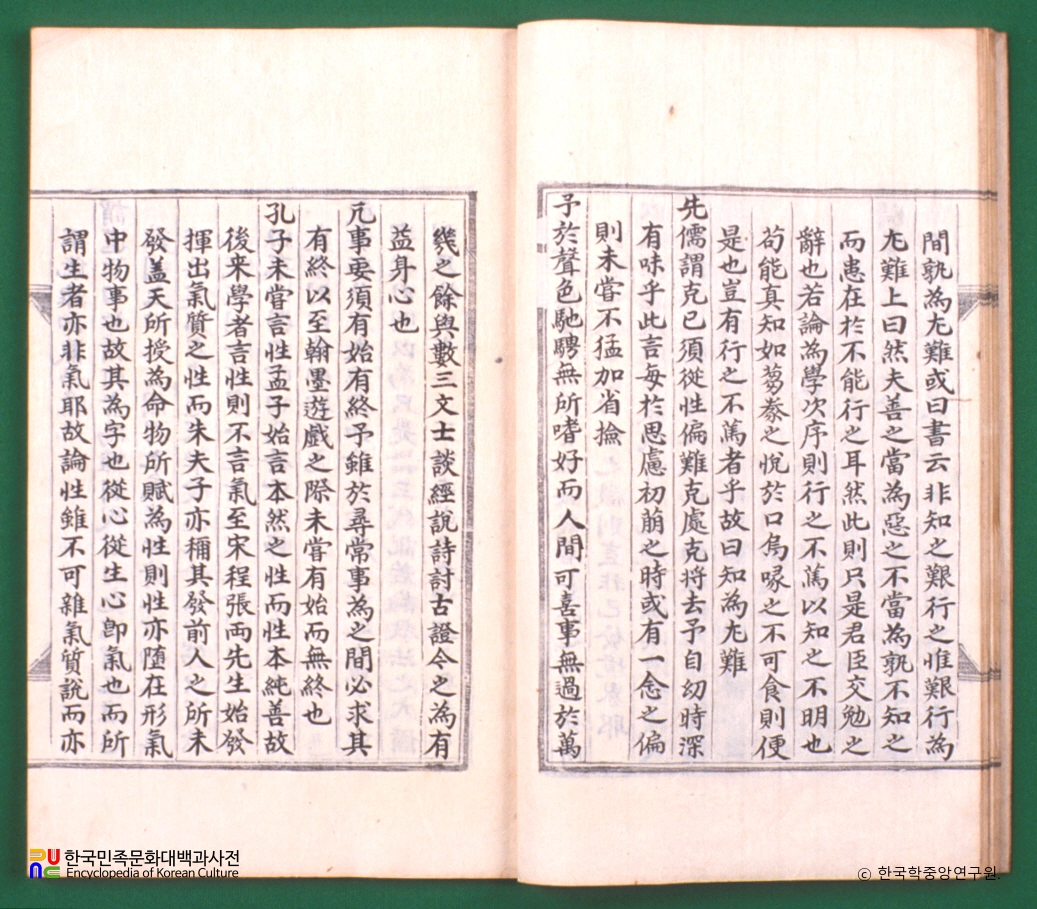 間孰為尤難或曰書云非知之艱行之惟艱行為
尤難上曰然夫善之當為惡之不當為孰不知之
而患在於不能行之耳然此則只是君臣交勉之
辭也若論為學次序則行之不篤以知之不明也
苟能真知如芻豢之悅於口烏喙之不可食則便
是也豈有行之不篤者乎故曰知為尤難
先儒謂克已須從性偏難克處克將去予自幼時深
有味乎此言每於思慮初萠之時或有一念之偏
則未嘗不猛加省撿
予於聲色馳騁無所嗜好而人間可喜事無過於萬
幾之餘與數三文士談經說詩討古證今之為有
益身心也
凢事要須有始有終予雖於尋常事為之間必求其
有終以至翰墨遊戲之際未嘗有始而無終也
孔子未嘗言性孟子始言本然之性而性本純善故
後来學者言性則不言氣至宋程張両先生始發
揮出氣質之性而朱夫子亦稱其發前人之所未
發盖天所授為命物所賦為性則性亦随在形氣
中物事也故其為字也從心從生心卽氣也而所
謂生者亦非氣耶故論性雖不可雜氣質說而亦
한국민족문화대백과사전
Encyclopedia of Korean Culture
© 한국학중앙연구원.